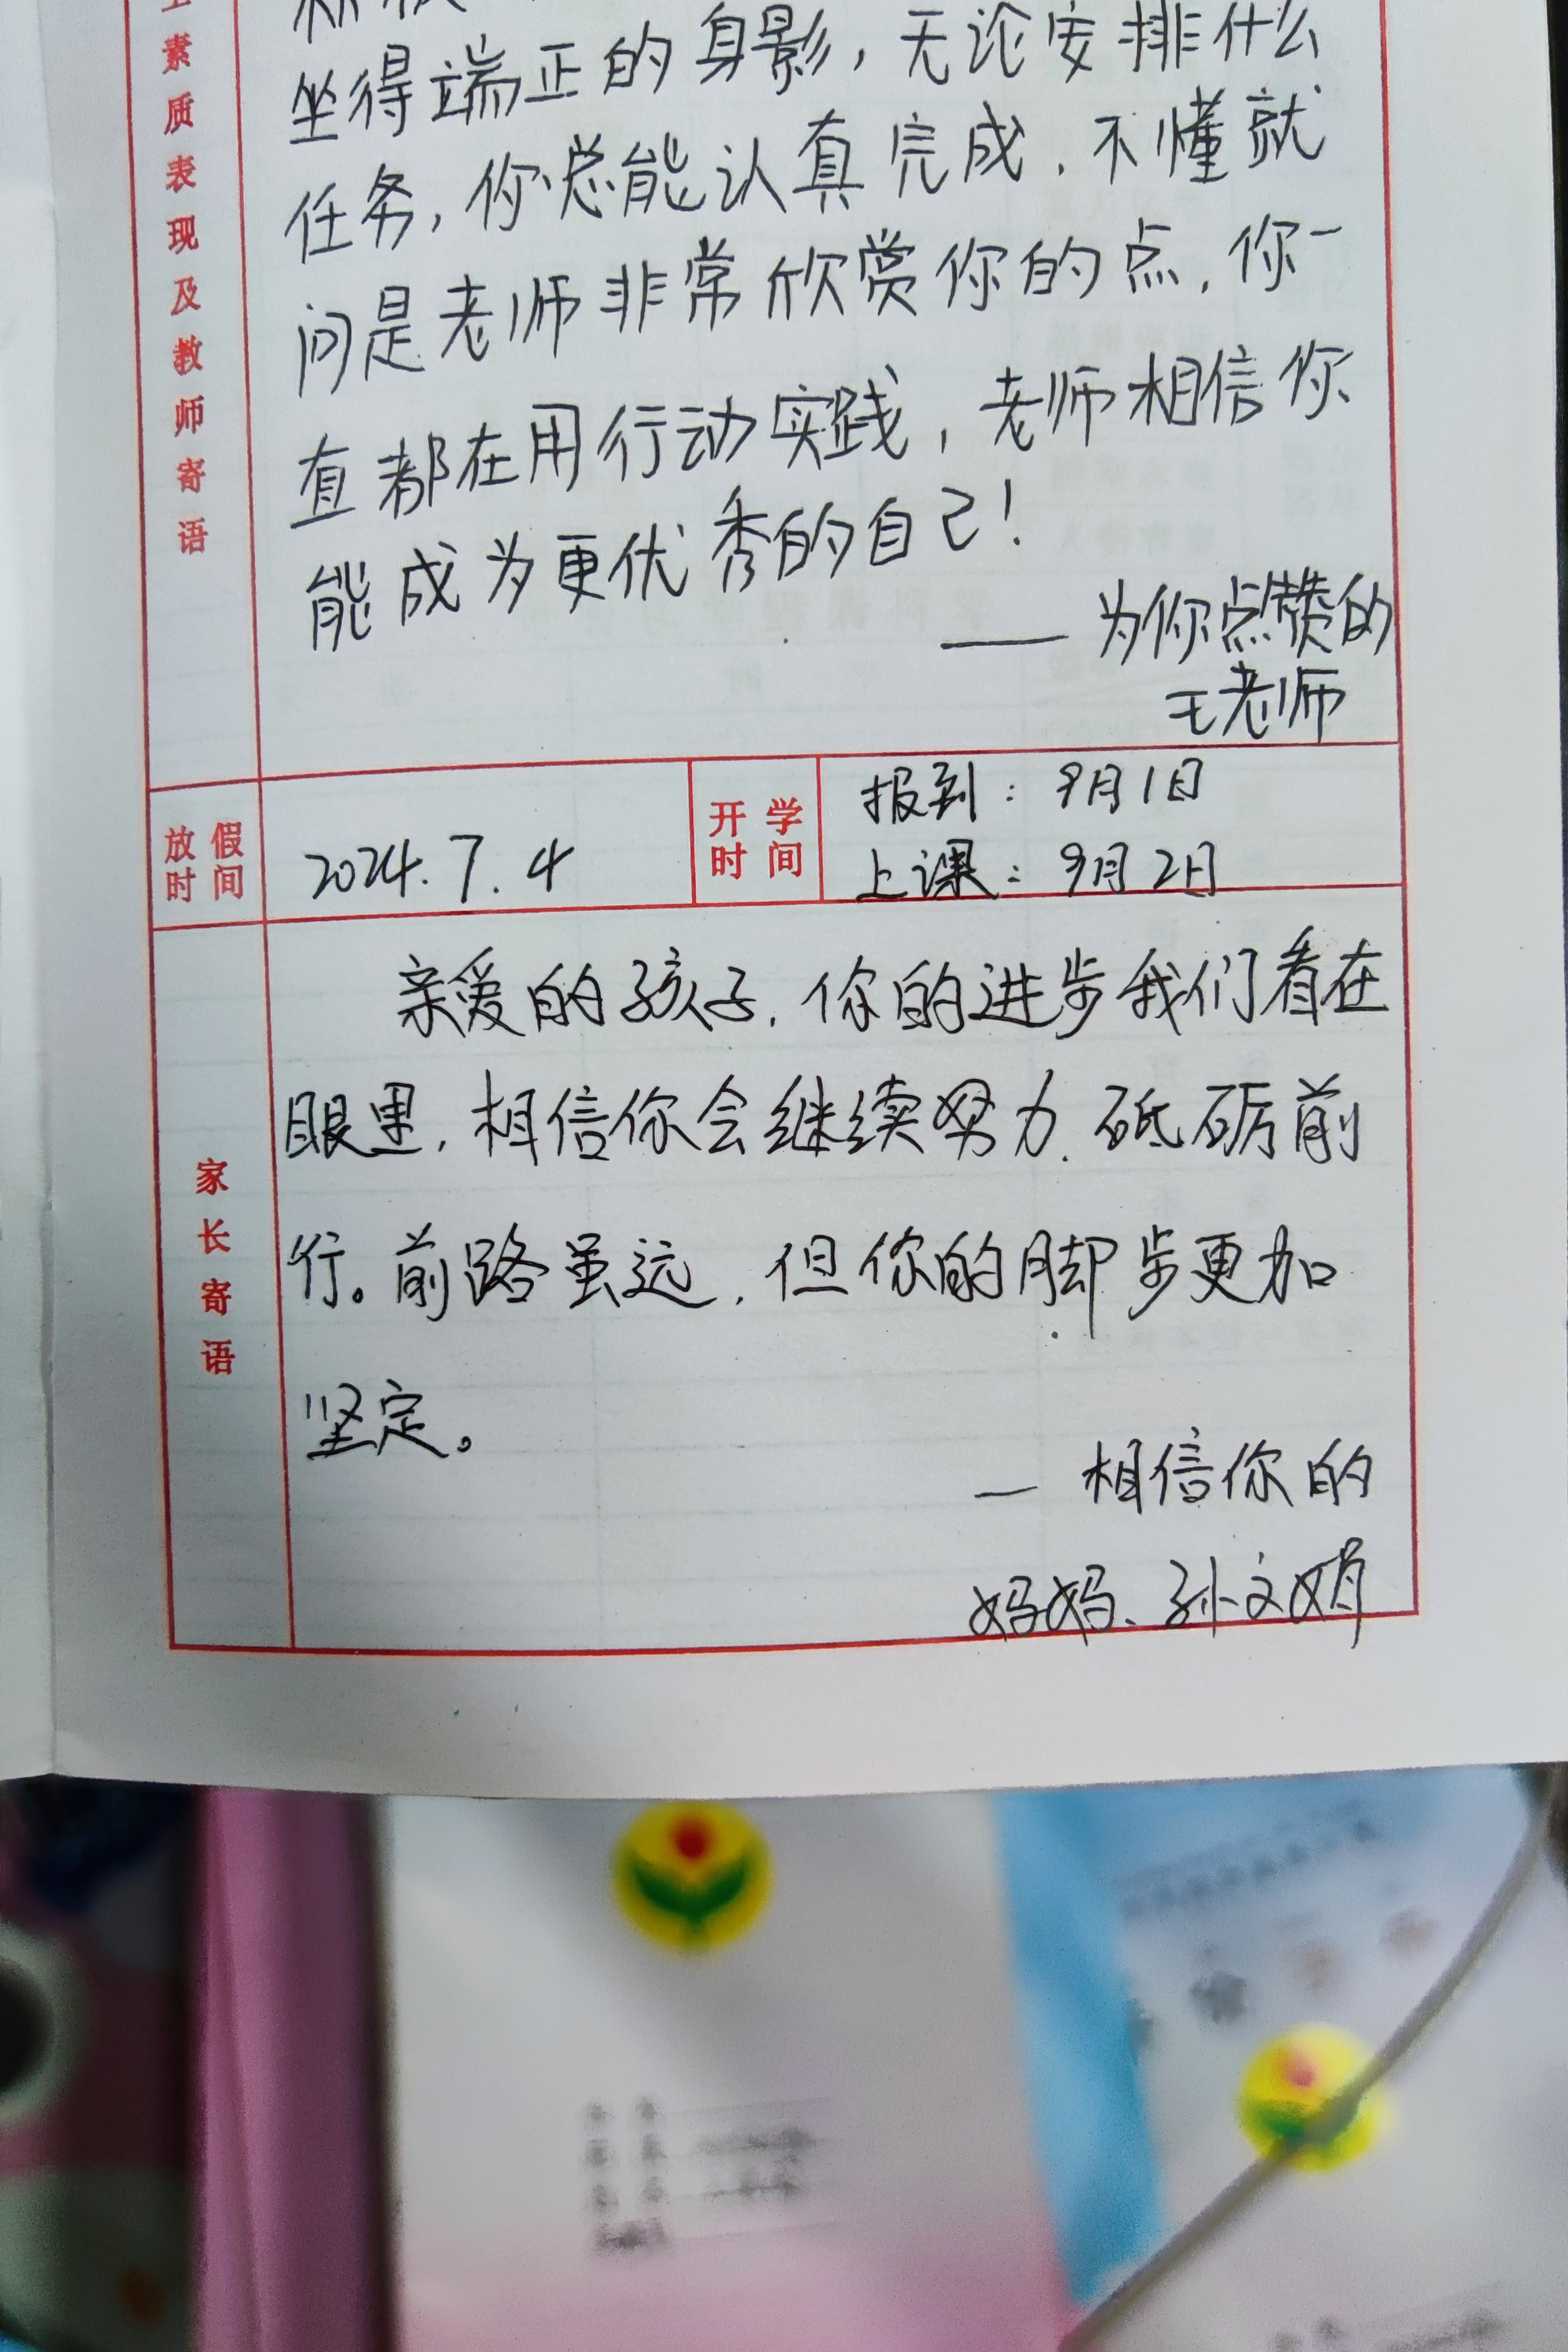 素质表现及教师寄语
坐得端正的身影,无论安排什么
任务,你总能认真完成,不懂就
问是老师非常欣赏你的点,你一
直都在用行动实践,老师相信你
能成为更优秀的自己!
——为你点赞的
王老师
放假时间
2024.7.4
开学时间
报到:9月1日
上课:9月2日
家长寄语
亲爱的孩子,你的进步我们看在
眼里,相信你会继续努力,砥砺前
行。前路虽远,但你的脚步更加
坚定。
—相信你的
妈妈、孙文娟